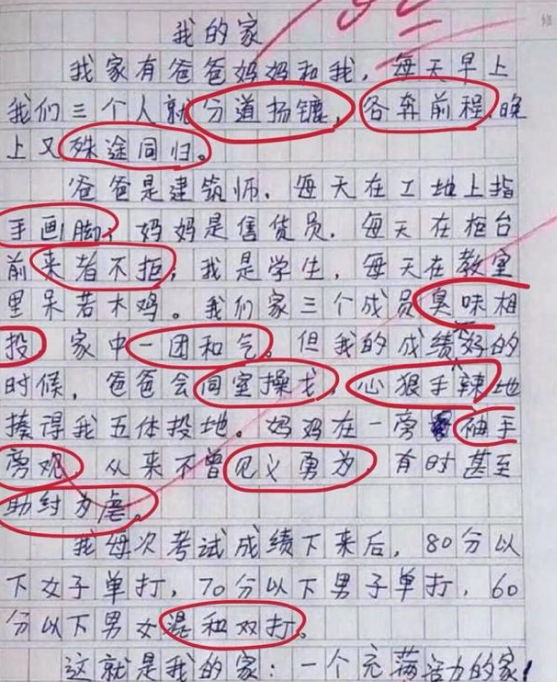 我的家
我家有爸爸妈妈和我，每天早上
我们三个人就分道扬镳，各奔前程，晚
上又殊途同归。
爸爸是建筑师，每天在工地上指
手画脚，妈妈是售货员，每天在柜台
前来者不拒，我是学生，每天在教室
里呆若木鸡。我们家三个成员臭味相
投 家中一团和气。但我的成绩好的
时候，爸爸会同室操戈，心狠手辣地
揍得我五体投地。妈妈在一旁袖手
旁观，从来不曾见义勇为，有时甚至
助纣为虐。
我每次考试成绩下来后，80分以
下女子单打，70分以下男子单打，60
分以下男女混和双打。
这就是我的家：一个充满活力的家！